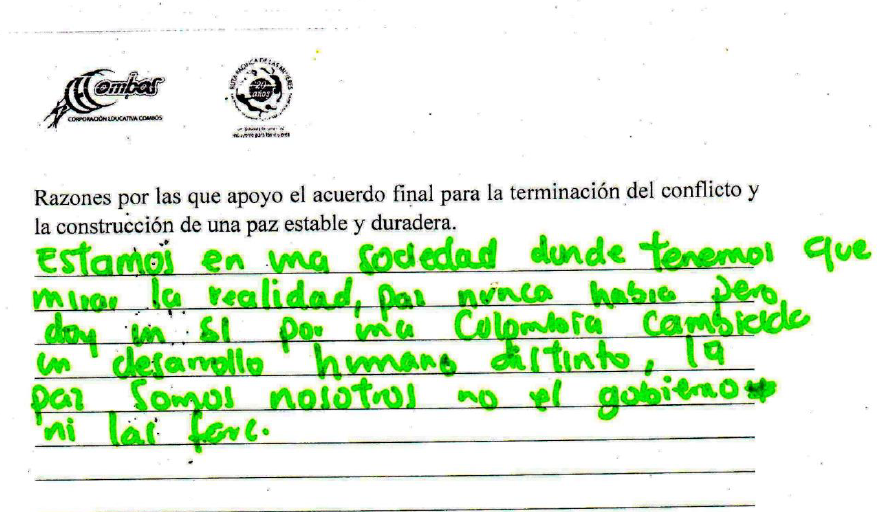 Combos
CORPORACIÓN EDUCATIVA COMBOS
RUTA PACÍFICA DE LAS MUJERES
20
años
Razones por las que apoyo el acuerdo final para la terminación del conflicto y
la construcción de una paz estable y duradera.
Estamos en una sociedad dunde tenemos que
mirar la realidad, paz nunca habra pero
doy un si por una Colombia cambiede
un desarrollo humano distinto, la
paz somos nosotros no el gobierno
ni las farc.